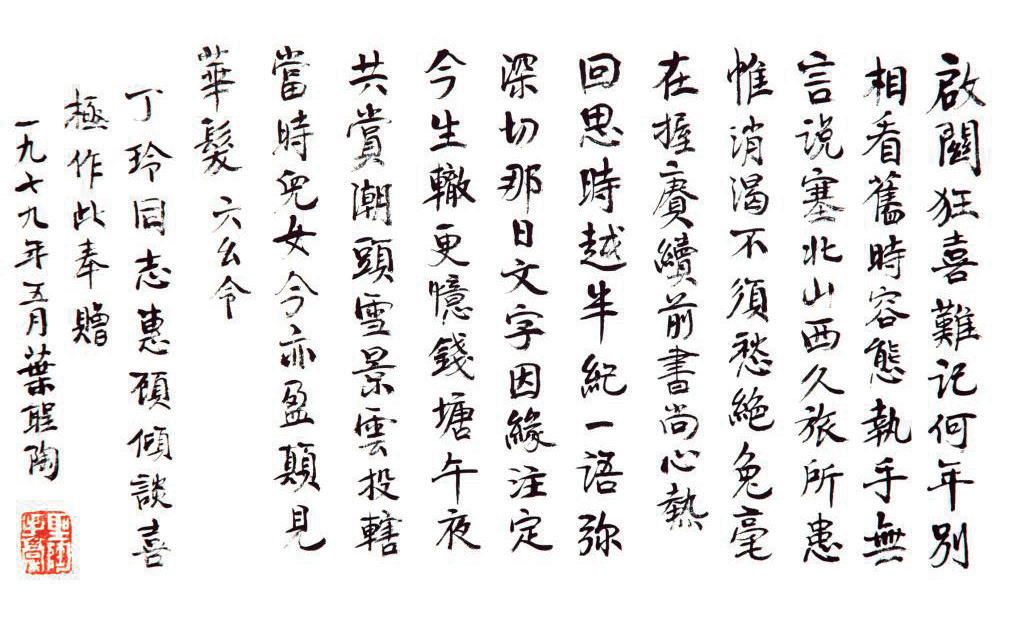 啟關狂喜難記何年別
相看舊時容態執手無
言說塞北山西久旅所患
惟消渴不須愁絕兔毫
在握賡續前書尚心熱
回思時越半紀一語弥
深切那日文字因緣注定
今生轍更憶錢塘午夜
共賞潮頭雪景雲投轄
當時兒女今亦盈顛見
華髮 六幺令
丁玲同志惠顧傾談喜
極作此奉贈
一九七九年五月葉聖陶